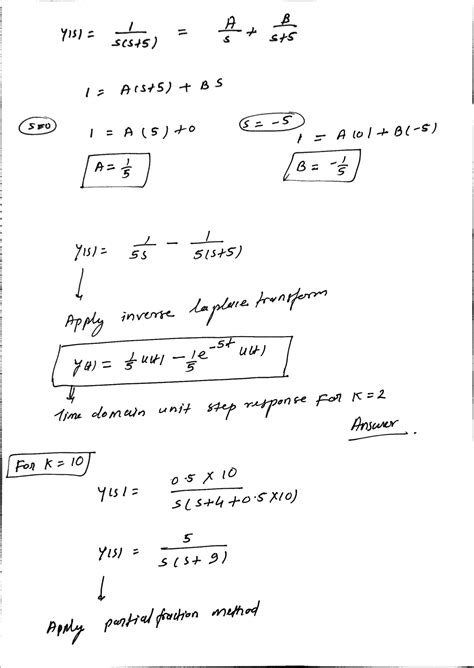 Y(s) = 1/(s(s+5)) = A/s + B/(s+5)
1 = A(s+5) + BS
s=0
1 = A(5) + 0
A = 1/5
s = -5
1 = A(0) + B(-5)
B = -1/5
Y(s) = 1/5s - 1/(5(s+5))
Apply inverse laplace transform
y(t) = 1/5 u(t) - 1/5 e^-5t u(t)
Time domain unit step response For K=2
Answer.
For K=10
Y(s) = (0.5 X 10)/(s(s+4+0.5X10))
Y(s) = 5/(s(s+9))
Apply partial fraction method